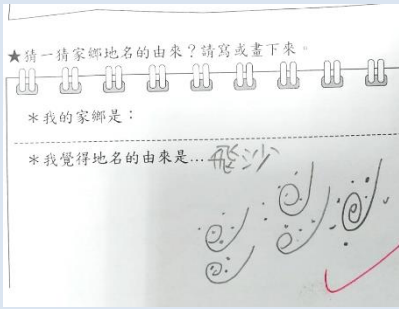 ★猜一猜家鄉地名的由來？請寫或畫下來。
＊我的家鄉是：
＊我覺得地名的由來是…飛沙